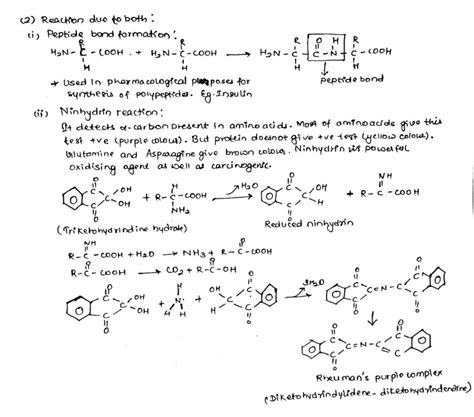 (2) Reaction due to both:
(i) Peptide bond formation:
H₂N-C-COOH + H₂N-C-COOH → H₂N-C-C-N-C-COOH
R H R H R O H R H H
* Used in pharmacological purposes for
synthesis of polypeptides. Eg. Insulin
peptide bond
(ii) Ninhydrin reaction:
It detects α-carbon present in amino acids. Most of amino acids give this
test +ve (purple colour). But protein does not give +ve test (yellow colour).
Glutamine and Asparagine give brown colour. Ninhydrin is powerful
oxidising agent as well as carcinogenic.
O C C OH OH C O + R-C-COOH H NH₂ → H₂O O C C OH H C O + R-C-COOH NH
(Triketohydrindine hydrate)
Reduced ninhydrin
NH
R-C-COOH + H₂O → NH₃ + R-C-COOH
O
O
R-C-COOH → CO₂ + R-C-OH
O
O C C OH OH C O + N H H H + OH H C C O C O → 3H₂O O C C=N-C C O C O C O
O C C=N-C C O C O C O
Rheuman's purple complex
(Diketohydrindylidene - diketohydrindendine)